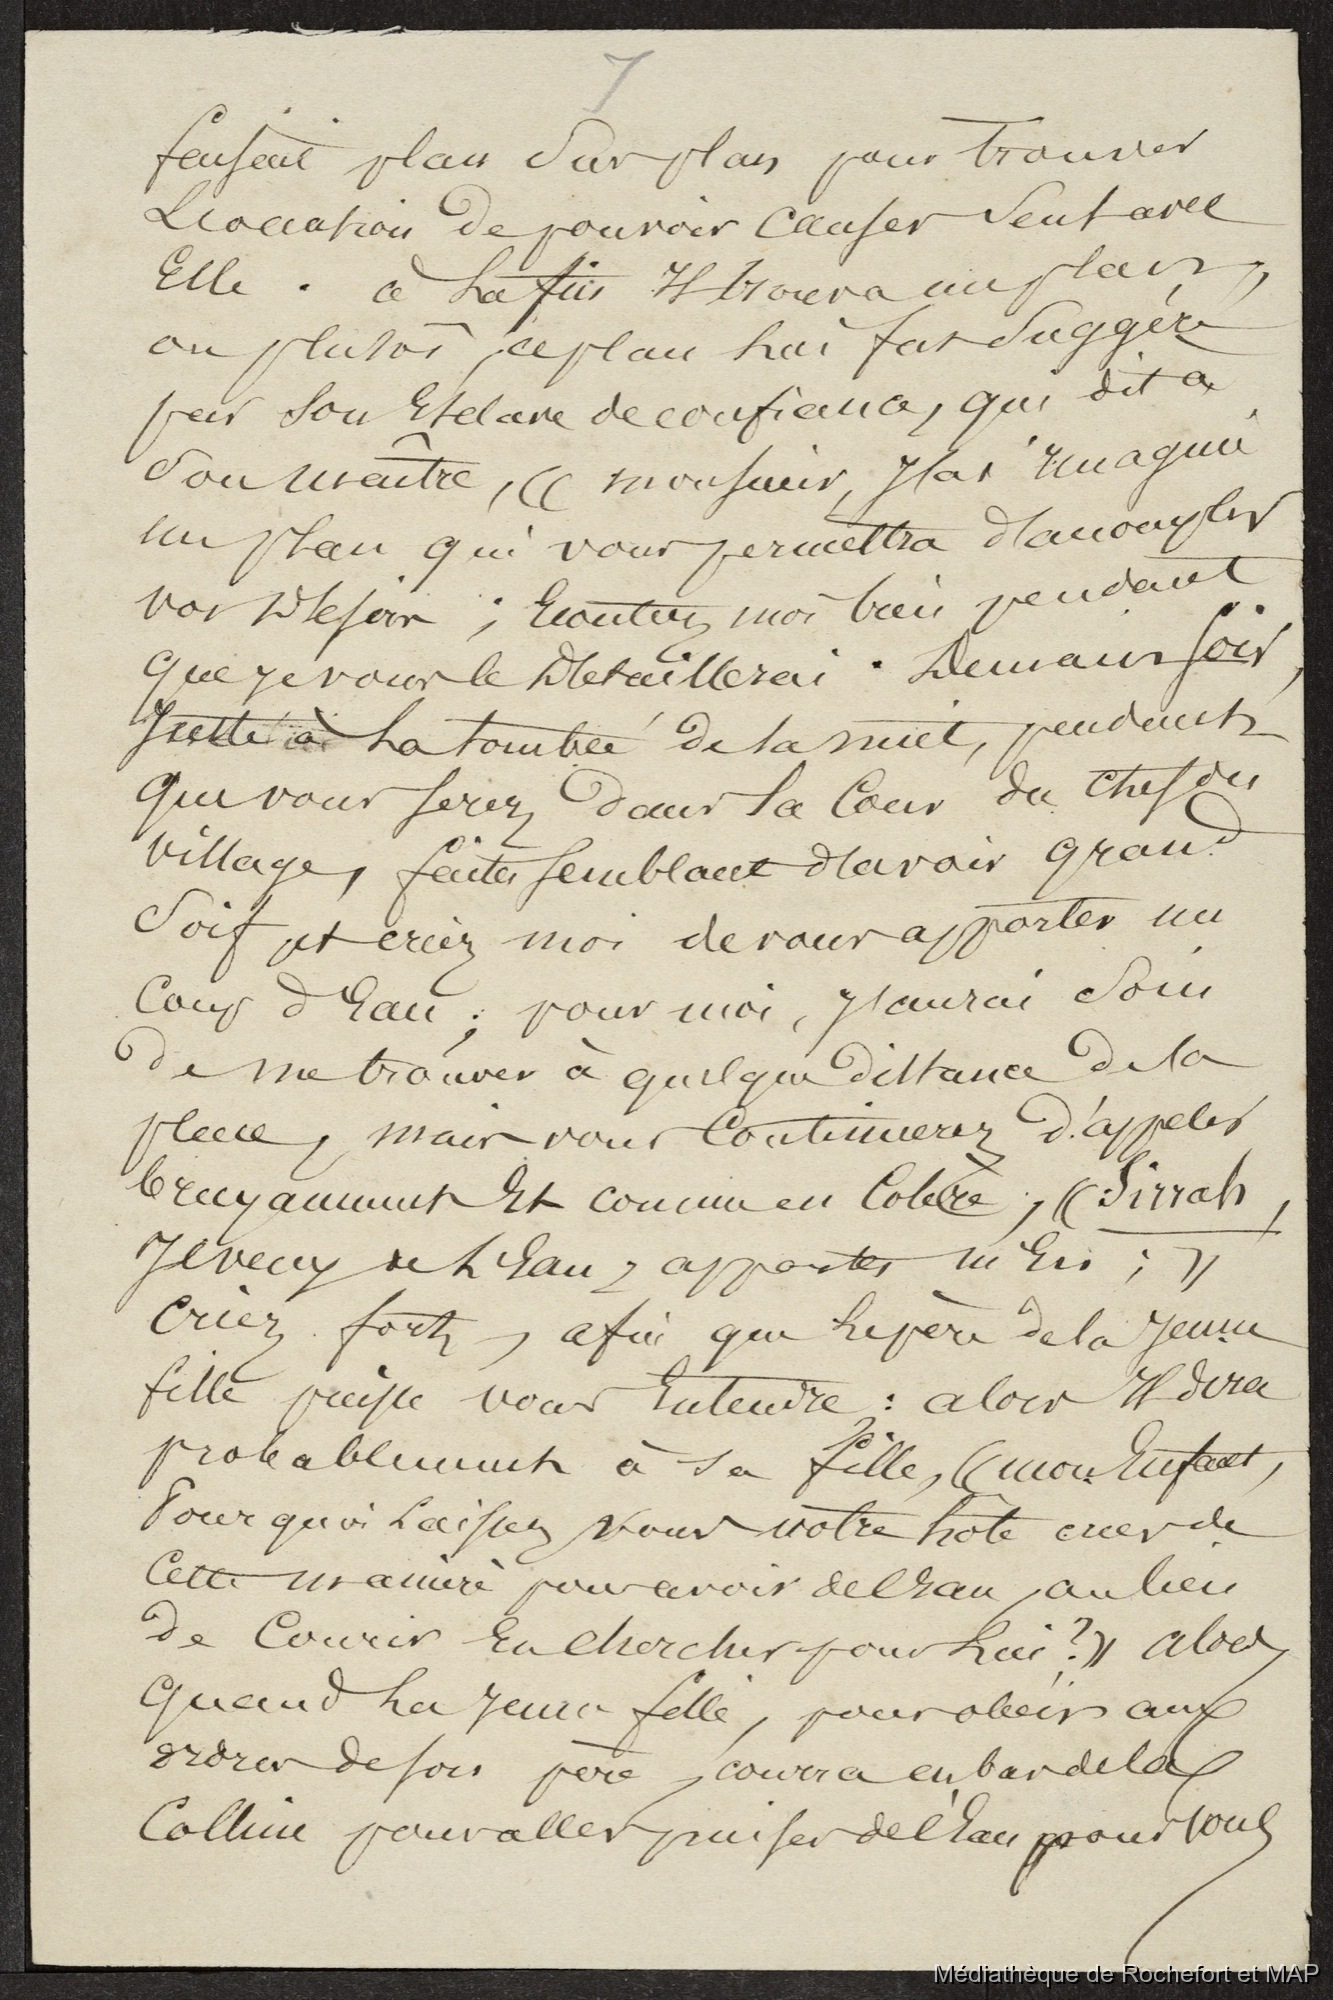 7
faisait plan sur plan pour trouver
L'occasion de pouvoir causer seul avec
Elle . à La fin Il trouva un plan,
ou plutôt, ce plan Lui fut suggéré
par son Esclave de confiance, qui dit à
son maître, (( monsieur, J'ai imaginé
un plan qui vous permettra d'accomplir
vos désirs ; Ecoutez moi bien pendant
que je vous le détaillerai . Demain soir,
Juste à La tombée de la nuit, pendant
que vous serez dans la Cour du chef du
village, faites semblant d'avoir grand
soif et criez moi de vous apporter un
Coup d'Eau ; pour moi, J'aurai soin
de me trouver à quelque distance de la
place, mais vous Continuerez d'appeler
bruyamment Et comme en Colère, (( Sirrah,
Je veux de L'Eau, apportes m'En ; ))
Criez fort, afin que Le père de la Jeune
fille puisse vous Entendre : alors Il dira
probablement à sa fille, (( mon Enfant,
Pourquoi Laissez vous notre hôte crier de
Cette manière pour avoir de l'Eau, au lieu
de Courir En chercher pour Lui ? )) alors,
Quand La Jeune fille, pour obéir aux
ordres de son père, courra en bas de la
Colline pour aller puiser de l'Eau pour vous
Médiathèque de Rochefort et MAP